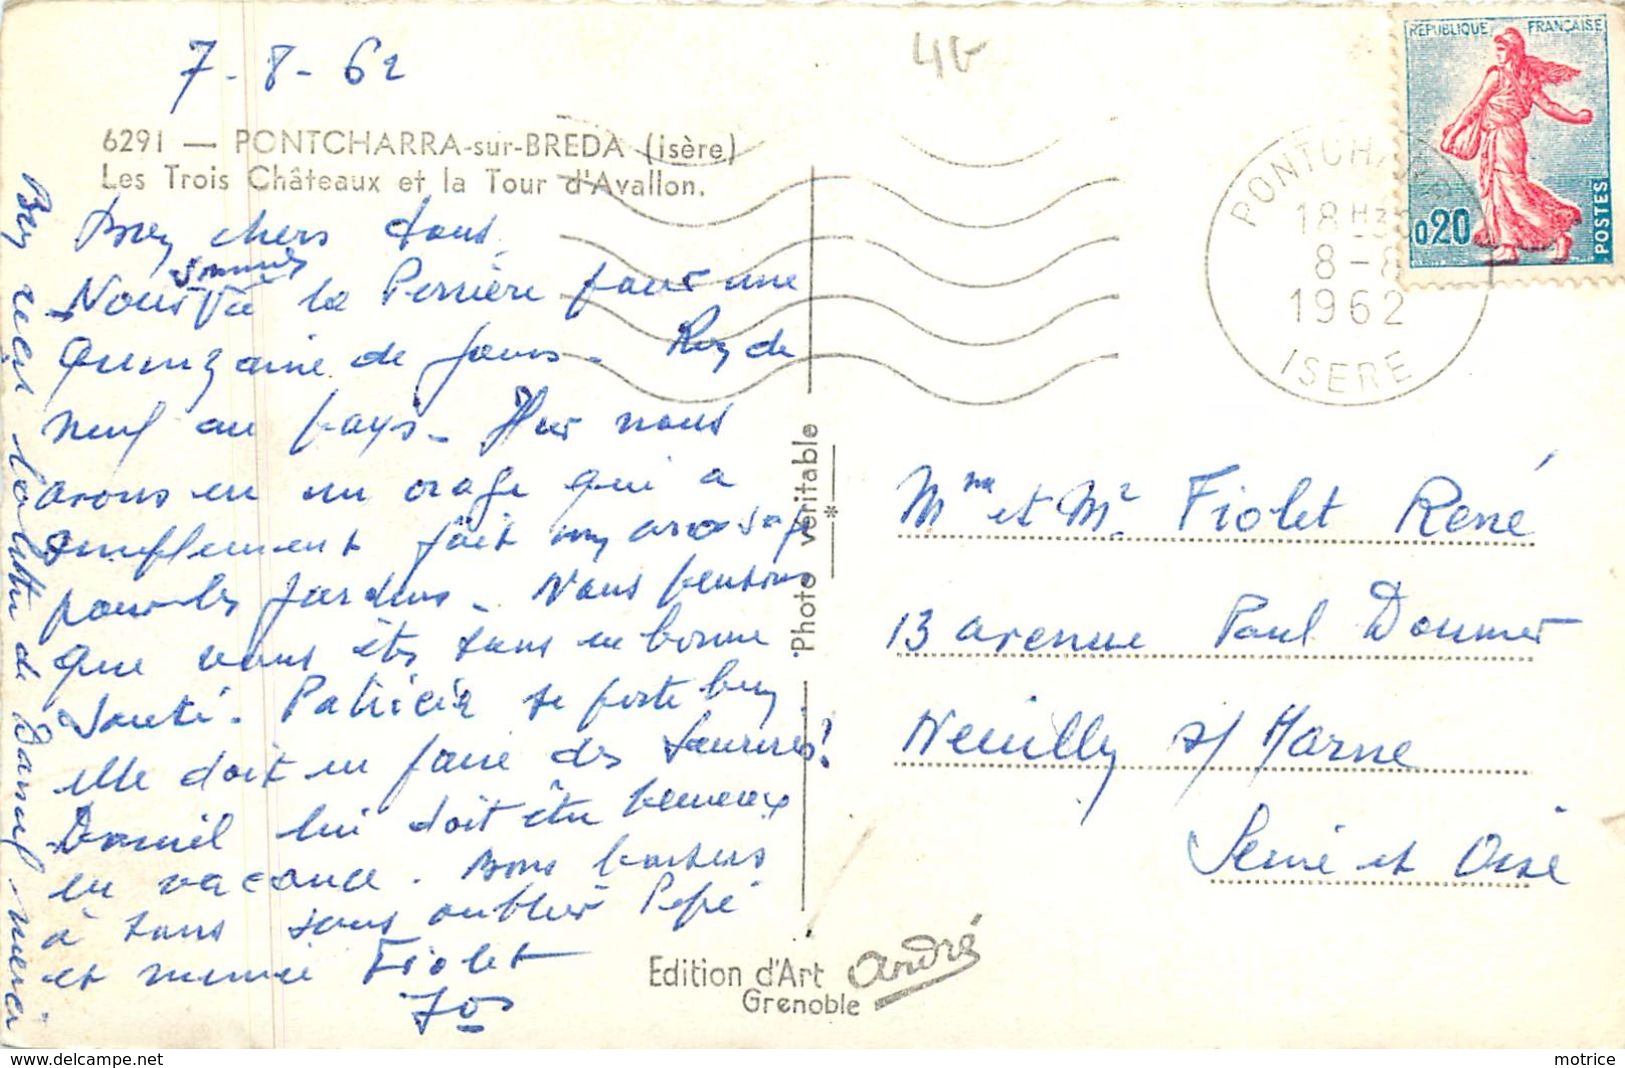 7-8-62
6291 — PONTCHARRA-sur-BREDA (Isère)
Les Trois Châteaux et la Tour d'Avallon.
Bien chers tous,
Nous sommes à la Perrière pour une
Quinzaine de jours. Rien de
neuf au pays. Hier nous
avons eu un orage qui a
simplement fait un arrosage
pour les jardins. Nous pensons
que vous êtes tous en bonne
santé. Patricia se porte bien
elle doit en faire des
Daniel lui doit être heureux
en vacance. Bons baisers
à tous sans oublier Pépé
et mémée Fiolet
Jos
Bien reçu la lettre de merci
REPUBLIQUE FRANÇAISE
0,20
POSTES
PONTCHARRA
18H30
8-8
1962
ISERE
Photo véritable
Mme et Mr Fiolet René
13 avenue Paul Doumer
Neuilly s/ Marne
Seine et Oise
Edition d'Art André
Grenoble
www.delcampe.net
motrice